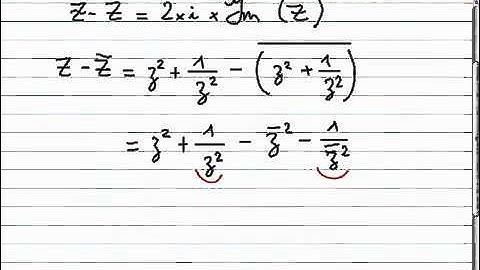 Z - Z̄ = 2 × i × Im (Z)
Z - Z̄ = z² + 1/z² - \overline{(z² + 1/z²)}
= z² + 1/z² - z̄² - 1/z̄²